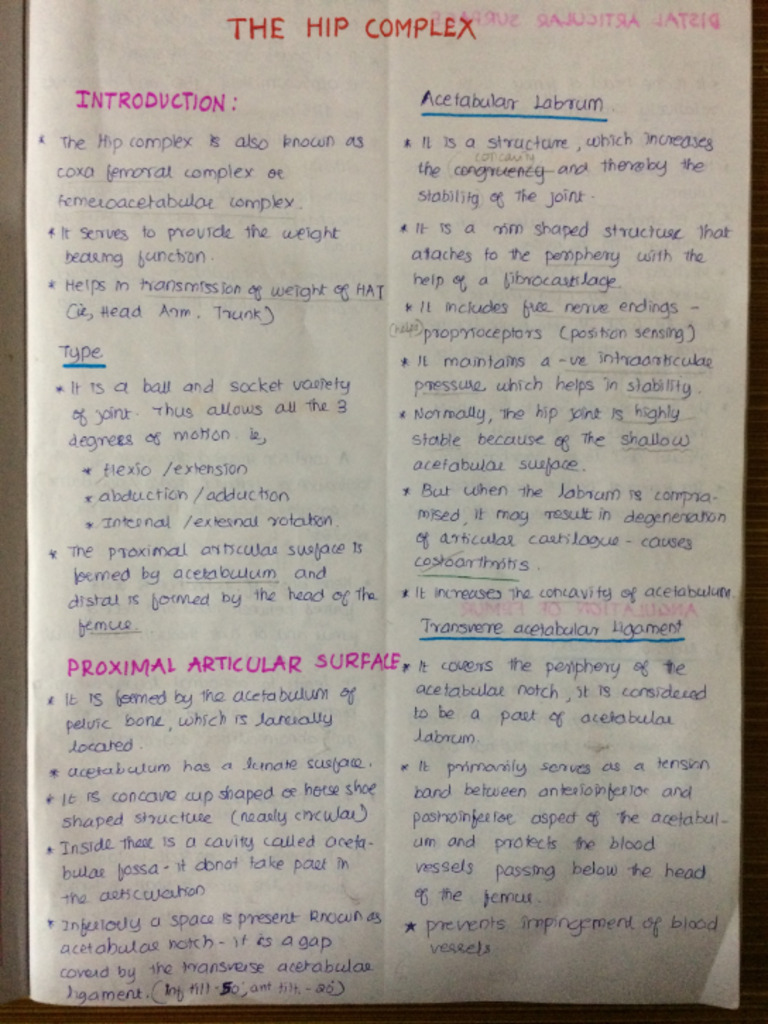 THE HIP COMPLEX
INTRODUCTION:
* The Hip complex is also known as
coxa femoral complex or
femeroacetabular complex.
* It serves to provide the weight
bearing function.
* Helps in transmission of weight of HAT
(ie, Head Arm. Trunk)
Type
* It is a ball and socket variety
of joint. Thus allows all the 3
degrees of motion. ie,
* flexio /extension
* abduction /adduction
* Internal /external rotation.
* The proximal articular surface is
formed by acetabulum and
distal is formed by the head of the
femur.
PROXIMAL ARTICULAR SURFACE
* It is formed by the acetabulum of
pelvic bone, which is
located.
* acetabulum has a lunate surface.
* It is concave cup shaped or horse shoe
shaped structure (nearly circular)
* Inside there is a cavity called aceta-
bular fossa - it donot take part in
the articulation
* Inferiorly a space is present known as
acetabular notch - it is a gap
coverd by the transverse acetabular
ligament. (Inf till - 50°, ant tilt. - 20°)
Acetabular Labrum.
* It is a structure, which increases
the congruency concavity and thereby the
stability of the joint.
* It is a rim shaped structure that
attaches to the periphery with the
help of a fibrocartilage.
* It includes free nerve endings -
(helps) proprioceptors (position sensing)
* It maintains a -ve intraarticular
pressure which helps in stability.
* Normally, the hip joint is highly
stable because of the shallow
acetabular surface.
* But when the labrum is compro-
mised, it may result in degeneration
of articular cartilague - causes
costoarthritis.
* It increases the concavity of acetabulum.
Transvere acetabular ligament
* It covers the periphery of the
acetabular notch, it is considered
to be a part of acetabular
labrum.
* It primarily serves as a tension
band between anterioinferior and
postroinferior aspect of the acetabul-
um and protects the blood
vessels passing below the head
of the femur.
* prevents impingement of blood
vessels